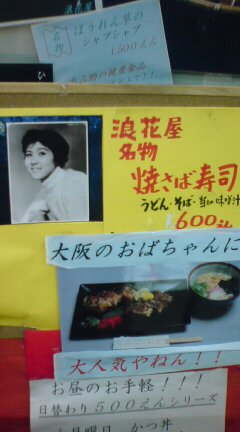 浪花屋
名物
ほうれん草の
シャブシャブ
1,500えん
の健康食品
浪花屋
名物
焼さば寿司
うどん・そば・
600
大阪のおばちゃんに
大人気やねん！！
お昼のお手軽！！！
日替わり500えんシリーズ
月曜日 かつ丼